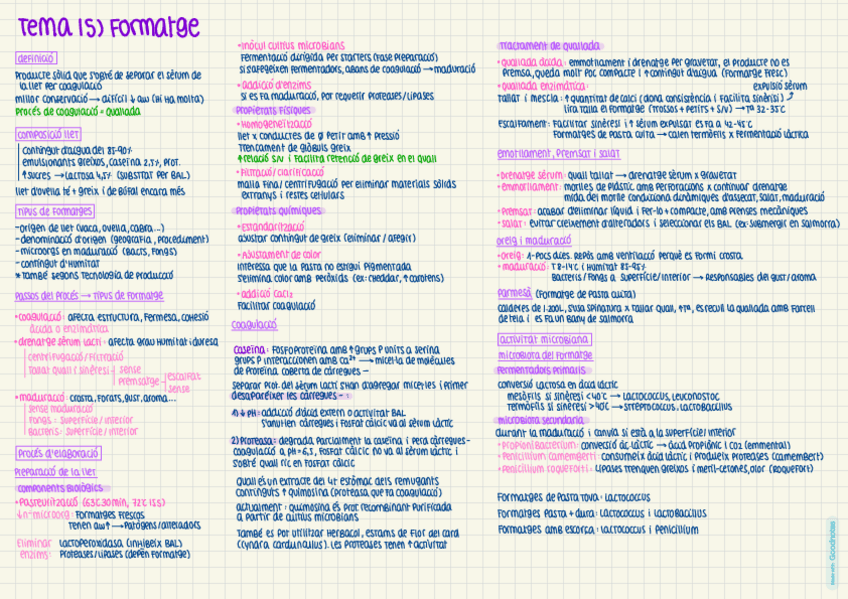 Tema (5) Formatge
definició
Producte sòlid que s'obté de separar el sèrum de
la llet per coagulació
millor conservació → difícil ↓ aw (hi ha molta)
Procés de coagulació = quallada
composició llet
contingut d'aigua del 85-90%
emulsionants greixos, caseïna 2,5%, prot.
↑ sucres → lactosa 4,5% (substrat per BAL)
llet d'ovella té + greix i de búfal encara més
Tipus de formatges
- origen de llet (vaca, ovella, cabra...)
- denominació d'origen (geografia, procediment)
- microorgs en maduració (bacts, fongs)
- contingut d'humitat
* també segons tecnologia de producció
Passos del procés → tipus de formatge
• coagulació: afecta estructura, fermesa, cohesió
àcida o enzimàtica
• drenatge sèrum làcti: afecta grau humitat i duresa
centrifugació / filtració
tallat quall (sinèresi)
sense
premsatge
escalfat
sense
• maduració: crosta, forats, gust, aroma...
sense maduració
Fongs: superfície / interior
Bacteris: superfície / interior
Procés d'elaboració
Preparació de la llet
components biològics
• Pasteurització (63ºC 30 min, 72ºC 15s)
↓ nº microorg
Formatges frescos
tenen aw↑ → patògens/alteradors
Eliminar
enzims:
lactoperoxidasa (inhibeix BAL)
Proteases/lipases (depèn formatge)
• inòcul cultius microbians
Fermentació dirigida per starters (fase preparació)
si s'afegeixen fermentadors, abans de coagulació → maduració
• addició d'enzims
si es fa maduració, per requerir proteases/lipases
Propietats físiques
• Homogeneïtzació
llet x conductes de ø petit amb ↑ pressió
Trencament de glòbuls greix
↑ relació S/V i facilita retenció de greix en el quall
• Filtració/clarificació
malla fina/centrifugació per eliminar materials sòlids
estranys i restes cel·lulars
Propietats químiques
• Estandarització
ajustar contingut de greix (eliminar / afegir)
• Ajustament de color
interessa que la pasta no estigui pigmentada
s'elimina color amb peròxids (ex: cheddar, ↑ carotens)
• addició CaCl2
Facilitar coagulació
coagulació
caseïna: fosfoproteïna amb ↑ grups P units a serina
grups P interaccionen amb Ca2+ → micel·la de molècules
de proteïna coberta de càrregues -
separar prot. del sèrum làcti s'han d'agregar micel·les i primer
desaparèixer les càrregues -:
1) ↓ pH: addició d'àcid extern o activitat BAL
s'anul·len càrregues i fosfat càlcic va al sèrum làctic
2) Proteasa: degrada parcialment la caseïna i perd càrregues -
coagulació a pH = 6,5, fosfat càlcic no va al sèrum làctic i
s'obté quall ric en fosfat càlcic
Quall és un extracte del 4t estómac dels remugants
continguts ↑ quimosina (proteasa que fa coagulació)
actualment: quimosina és prot recombinant purificada
a partir de cultius microbians
també es pot utilitzar herbacol, estams de flor del card
(cynara cardunculus). Les proteases tenen ↑ activitat
Tractament de quallada
• quallada àcida: emmotllament i drenatge per gravetat, el producte no es
premsa, queda molt poc compacte i ↑ contingut d'aigua (formatge fresc)
• quallada enzimàtica:
expulsió sèrum
tallat i mescla: ↑ quantitat de calci (dona consistència i facilita sinèresi)
lira talla el formatge (trossos + petits ↑ S/V) → Tª 32-35ºC
Escalfament: facilitar sinèresi i ↑ sèrum expulsat es fa a 42-45ºC
Formatges de pasta cuita → calen termòfils x fermentació làctica
Emotllament, premsat i salat
• Drenatge sèrum: quall tallat → drenatge sèrum x gravetat
• Emmotllament: motlles de plàstic amb perforacions x continuar drenatge
mida del motlle condiciona dinàmiques d'assecat, salat, maduració
• Premsat: acabar d'eliminar líquid i fer-lo + compacte, amb premses mecàniques
• salat: evitar creixement d'alteradors i seleccionar els BAL (ex: submergir en salmorra)
Oreig i maduració
• Oreig: 1-pocs dies. Repòs amb ventilació perquè es formi crosta.
• maduració: T 8-14ºC i humitat 85-95%
Bacteris / Fongs a superfície/interior → Responsables del gust/aroma
Parmesà (formatge de pasta cuita)
Calderes de 1.200L, s'usa spinatura x tallar quall, ↑Tª, es recull la quallada amb farcell
de tela i es fa un bany de salmorra
activitat microbiana
microbiota del formatge
Fermentadors primaris
conversió lactosa en àcid làctic
mesòfils si sinèresi < 40ºC → lactococcus, leuconostoc
termòfils si sinèresi > 40ºC → streptococcus, lactobacillus
microbiota secundària
durant la maduració i canvia si està a la superfície/interior
• Propionibacterium: conversió àc. làctic → àcid propiònic i CO2 (emmental)
• Penicillium camemberti: consumeix àcid làctic i produeix proteases (camembert)
• Penicillium roqueforti: lipases trenquen greixos i metil-cetones, olor (roquefort)
Formatges de pasta tova: lactococcus
Formatges pasta + dura: lactococcus i lactobacillus
Formatges amb escorça: lactococcus i Penicillium
Made with Goodnotes